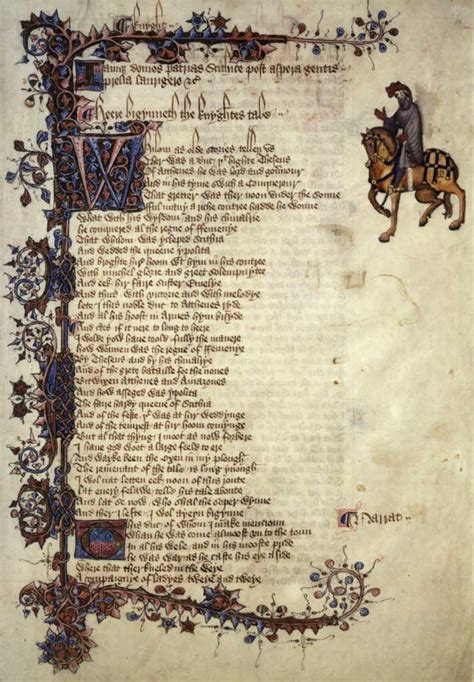 Knyght
Iamque domos patrias Scithice post aspera gentis
prelia laurigero &c
Heere bigynneth the knyghtes tale
Whilom as olde stories tellen vs
Ther was a duc þt highte Theseus
Of Atthenes he was lord and gouernour
And in his tyme swich a Conquerour
That gretter was ther noon vnder the sonne
fful many a riche contree hadde he wonne
What with his wysdom and his chiualrie
He conquered al the regne of ffemenye
That whilom was ycleped Scithia
And wedded the queene ypolita
And broghte hir hoom wt hym in his contree
With muchel glorie and greet solempnytee
And eek hir faire suster Emelye
And thus with victorie and with melodye
Lete I this noble duc to Atthenes ryde
And al his hoost in Armes hym bisyde
And certes if it nere to long to heere
I wolde yow haue toold fully the manere
How wonnen was the regne of ffemenye
By Theseus and by his chiualrye
And of the grete bataille for the nones
Bitwixen Atthenes and Amazones
And how asseged was ypolita
The faire hardy queene of Scithia
And of the feste þt was at hir weddynge
And of the tempest at hir hoom comynge
But al that thyng I moot as now forbere
I haue god woot a large feeld to ere
And wayke been the Oxen in my plough
The remenant of the tale is long ynough
I wol nat letten eek noon of this route
Lat euery felawe telle his tale aboute
And lat se now who shal the soper wynne
And ther I lefte I wol ayeyn bigynne
This duc of whom I make mencioun
Narrat
Whan he was come almoost vn to the toun
In al his wele and in his mooste pride
He was war as he caste his eye aside
Where that ther kneled in the weye
A compaignye of ladyes tweye and tweye